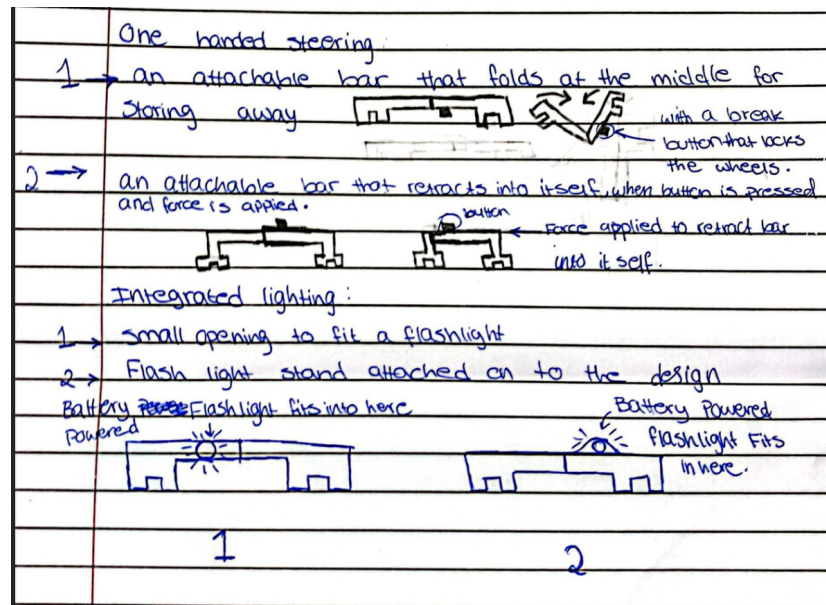 One handed steering:
1 → an attachable bar that folds at the middle for
storing away
with a break
button that locks
the wheels.
2 → an attachable bar that retracts into itself, when button is pressed
and force is applied.
button
Force applied to retract bar
into it self.
Integrated lighting:
1 → small opening to fit a flashlight
2 → Flash light stand attached on to the design
Battery Flashlight fits into here
Powered
Battery Powered
flashlight Fits
in here.
1
2